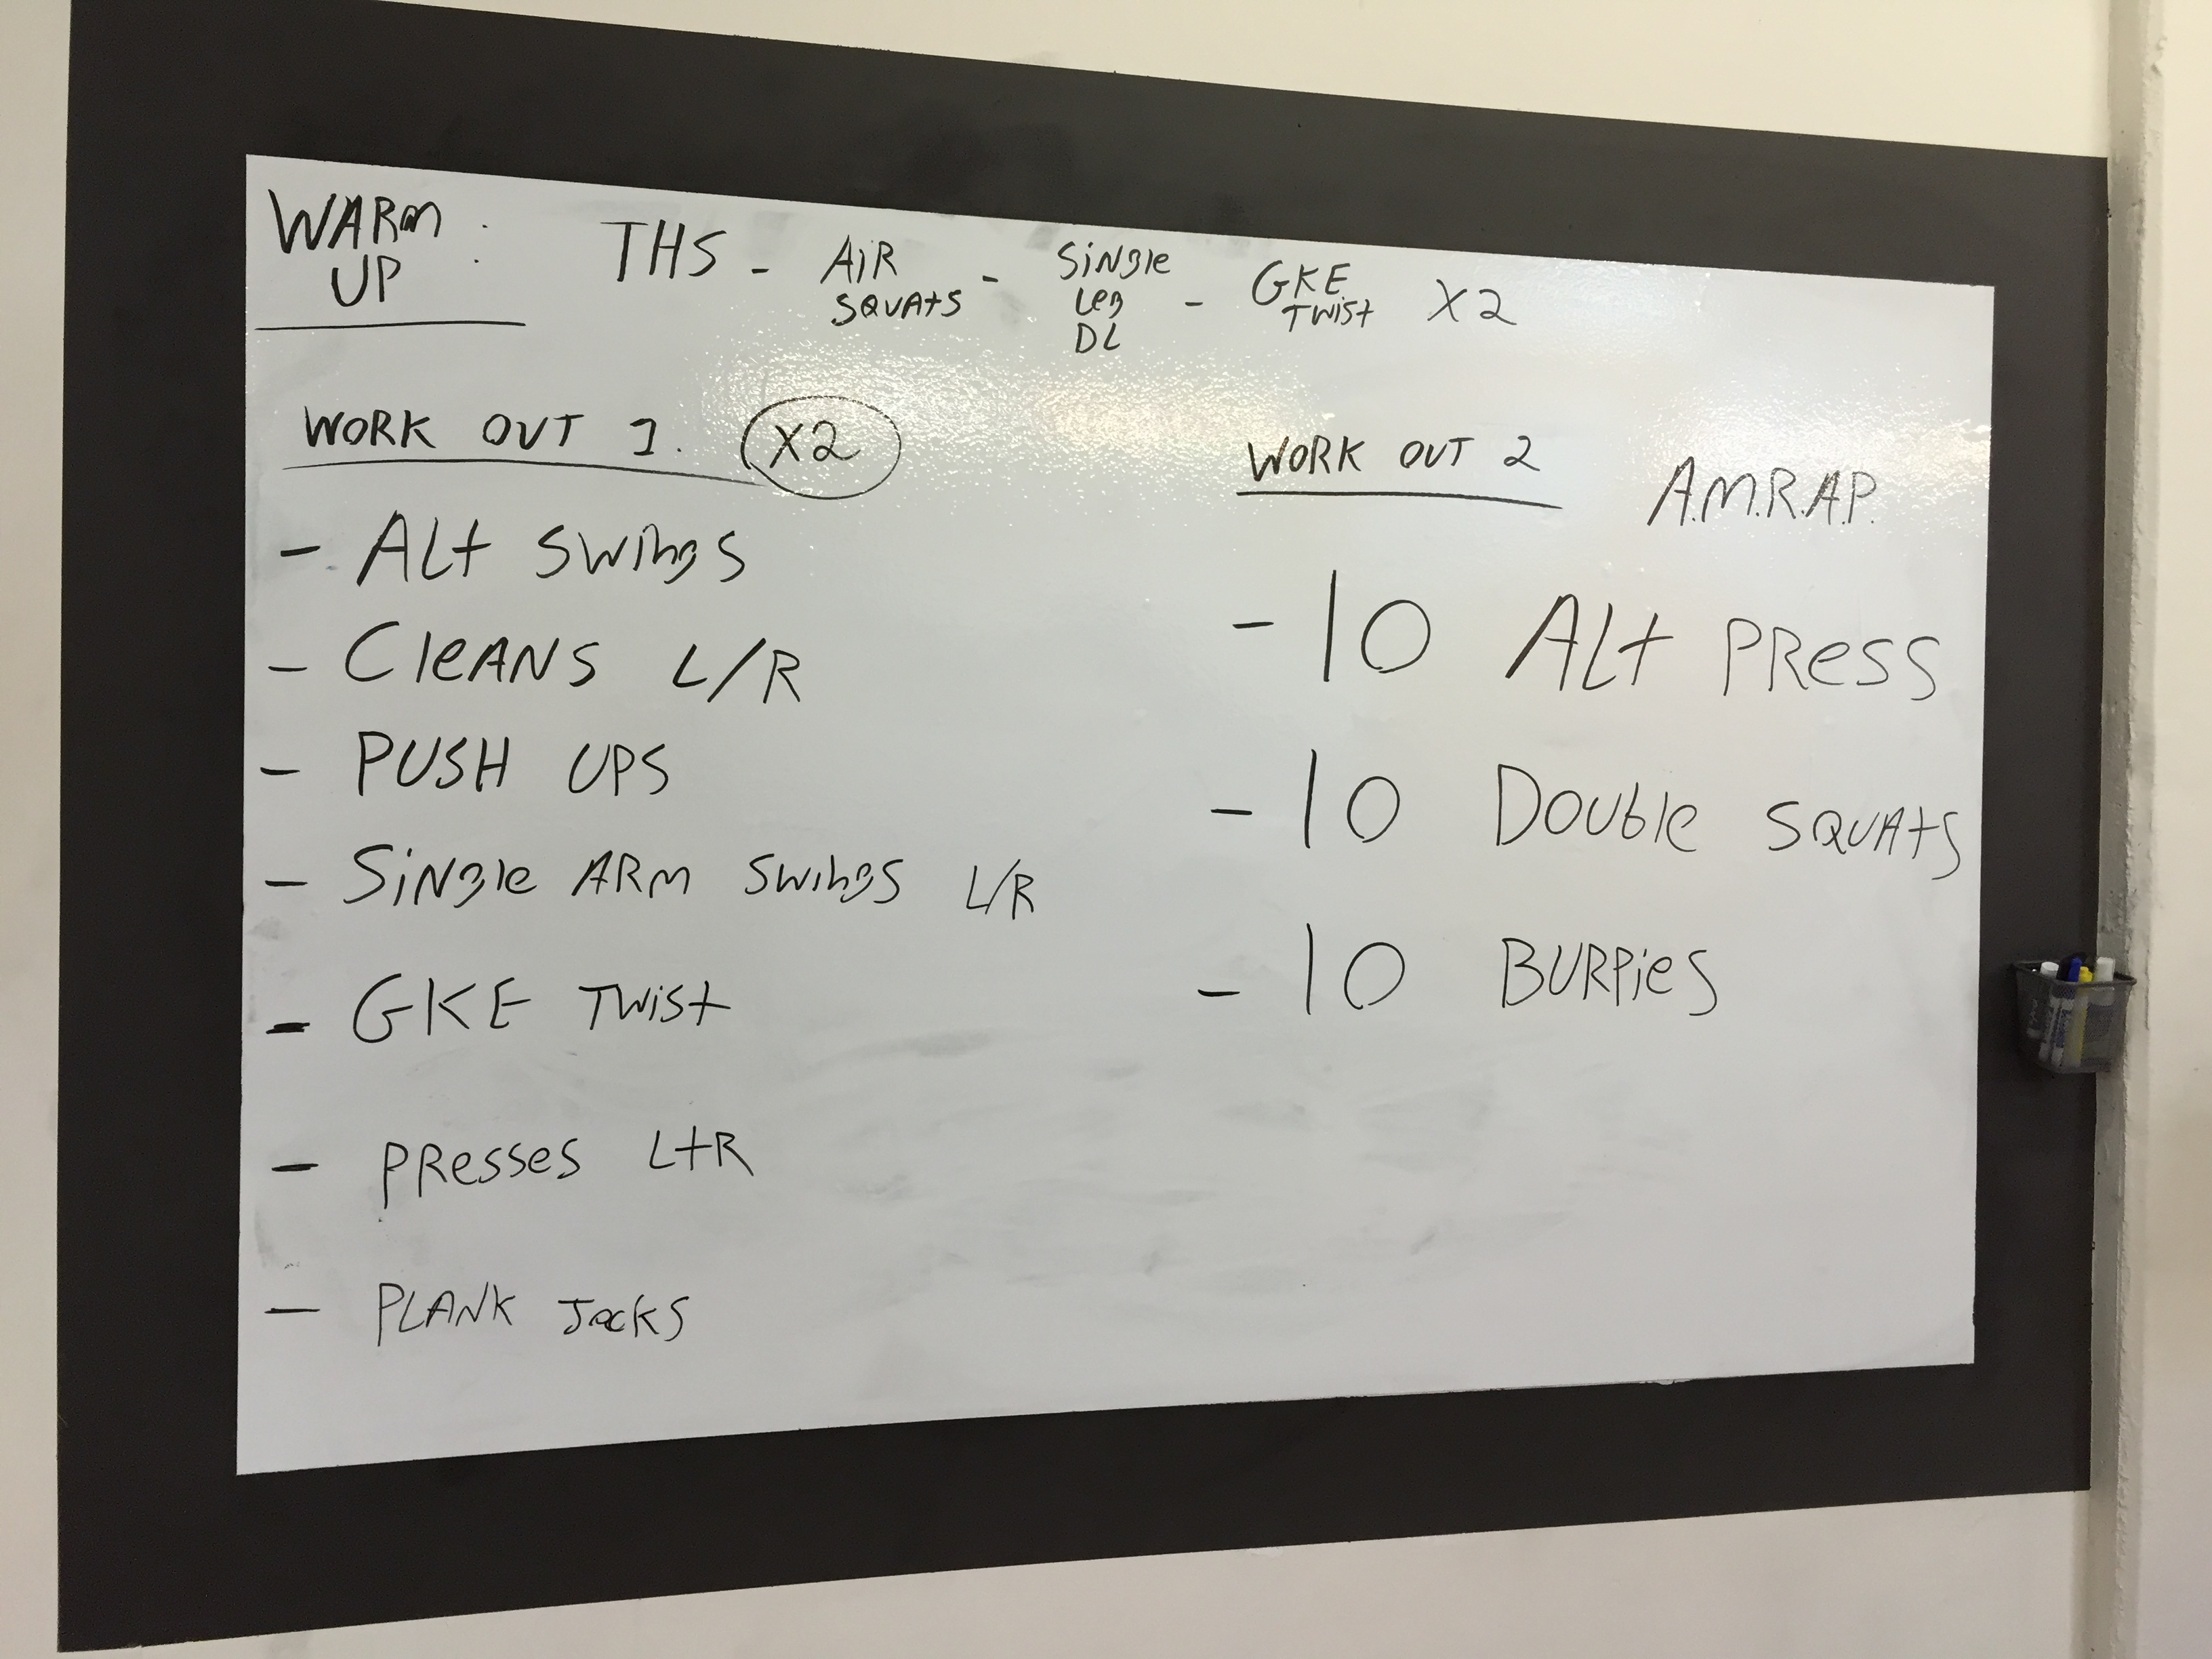 WARM UP : THS - AIR SQUATS - Single Leg DL - GKE TWIST X2
WORK OUT 1. X2
- ALt SWings
- CleANS L/R
- PUSH UPS
- SiNgle ARM SWings L/R
- GKE TWist
- PResses L+R
- PLANK JackS
WORK OUT 2 A.M.R.A.P.
- 10 ALt PRess
- 10 Double SQUAtS
- 10 BURPieS